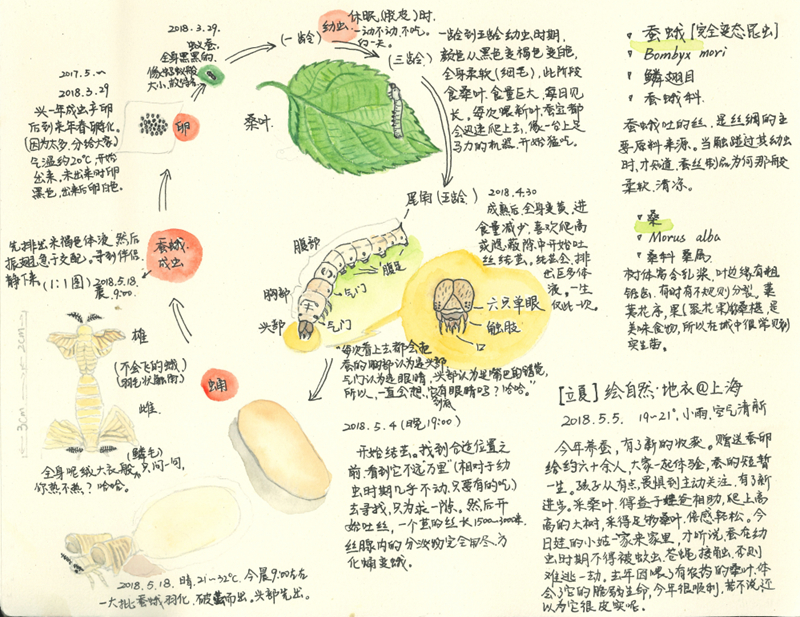 2017.5.~
2018.3.29
头一年成虫产卵
后到来年春孵化。
(因为太多,分给大家)
气温约20℃开始
出来,未出来时卵
黑色,出来后卵白色。
卵
2018.3.29.
蚁蚕.
全身黑黑的.
像蚂蚁般
大小,
(一龄)
幼虫
休眠(蜕皮)时.
一动不动,不吃。
约一天。
(三龄)
桑叶
一龄到五龄幼虫时期,
颜色从黑色变褐色变白色,
全身柔软(细毛),此阶段
食桑叶.食量巨大,每日见
长。每次喂新叶,蚕宝都
会迅速爬上去,像一台上足
马力的机器,开始猛吃。
尾角(五龄)
2018.4.30
成熟后,全身变黄,进
食量减少,喜欢爬高
或隐蔽隙中开始吐
丝结茧。结茧会排
出巨多体
液。一生
仅此一次。
腹部
腹足
胸部
气门
头部
气门
六只单眼
触肢
口
"每次看上去都会把
蚕的胸部认为是头部,
气门认为是眼睛,头部认为是嘴巴的错觉,
所以,一直会想,它到底有眼睛吗?哈哈。"
2018.5.4(晚19:00)
开始结茧。找到合适位置之
前,看到它不远"万里"(相对于幼
虫时期几乎不动,只要有的吃)
去寻找,只为求一隙。然后开
始吐丝,一个茧的丝长1500~3000米.
丝腺内的分泌物完全用尽,方
化蛹变蛾。
蛹
蚕蛾.
成虫
先排出米褐色体液,然后
振翅急于交配。寻到伴侣,
静下来。(1:1图) 2018.5.18.
晨.9:00.
2cm
3cm
雄
(不会飞的蛾)
雌
(鳞毛)
全身呢绒大衣般,只问一句,
你热不热?哈哈。
2018.5.18.晴.21~32℃.今晨9:00左右
一大批蚕蛾羽化.破茧而出。头部先出。
蚕蛾[完全变态昆虫]
Bombyx mori
鳞翅目
蚕蛾科.
蚕蛾吐的丝.是丝绸的主
要原料来源。当触碰过其幼虫
时,才知道,蚕丝制品为何那般
柔软.清凉。
桑
Morus alba
桑科 桑属.
树体富含乳浆.叶边缘有粗
锯齿.有时有不规则分裂。葇
荑花序,果(聚花果)做桑椹,是
美味食物,所以在城中很常见到
实生苗。
[立夏]绘自然·地衣@上海
2018.5.5. 19~21℃.小雨.空气清新
今年养蚕,有了新的收获。赠送蚕卵
给约六十余人,大家一起体验,蚕的短暂
一生。孩子从有点畏惧到主动关注.有了新
进步。采桑叶.得益于相助,爬上高
高的大树,采得足够桑叶.倍感轻松。今
日娃的小姑一家来家里,才听说,蚕在幼
虫时期不得被蚊虫.苍蝇,接触,否则
难逃一劫。去年因喂了有农药的桑叶,体
会了它的脆弱生命,今年很顺利,若不说还
以为它很皮实呢。